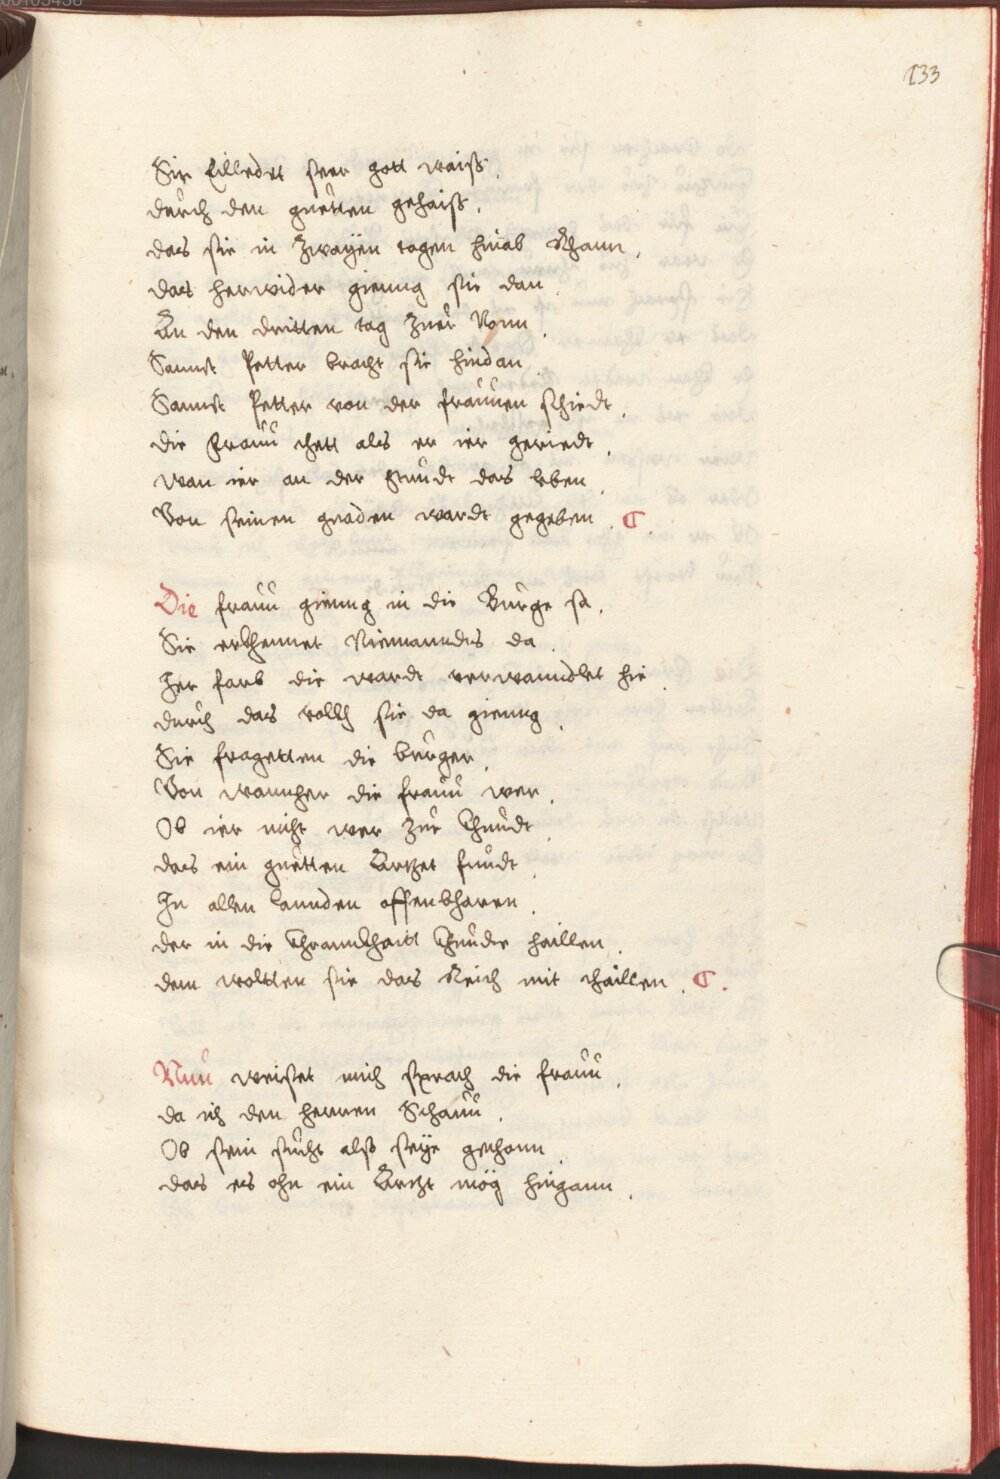 133
Sie Eilledet seer gott waiß.
durch den guetten gehaiß.
das sie in Zwayen tagen hinab Kham.
das herwider gieng sie dan.
An den dritten tag Zuer Nonn.
Sannct Petter bracht sie hindan.
Sannct Petter von der frauuen schiedt.
die Frauu thett als er ier geriedt.
wan ier an der stundt das leben.
Von seinen gnaden wardt gegeben.
Die frauu gieng in die Burge sa.
Sie erkhennet Niemanndts da.
Ier farb die wardt verwanndlet hie.
durch das vollkh sie da gieng.
Sie fragetten die burger.
Von wannher die frauu wer.
Ob ier niht wer Zue Khundt.
das ein guetten Artzet fundt.
In allen Lannden offenbharen.
der in die Khrannkhaitt Khundte haillen.
dem woltten sie das Reich mit thaillen.
Nun weiset mich sprach die frauu.
da ich den herren Schauu.
Ob sein sucht alß seye gethonn.
das es ohn ein Artzt mög hingann.